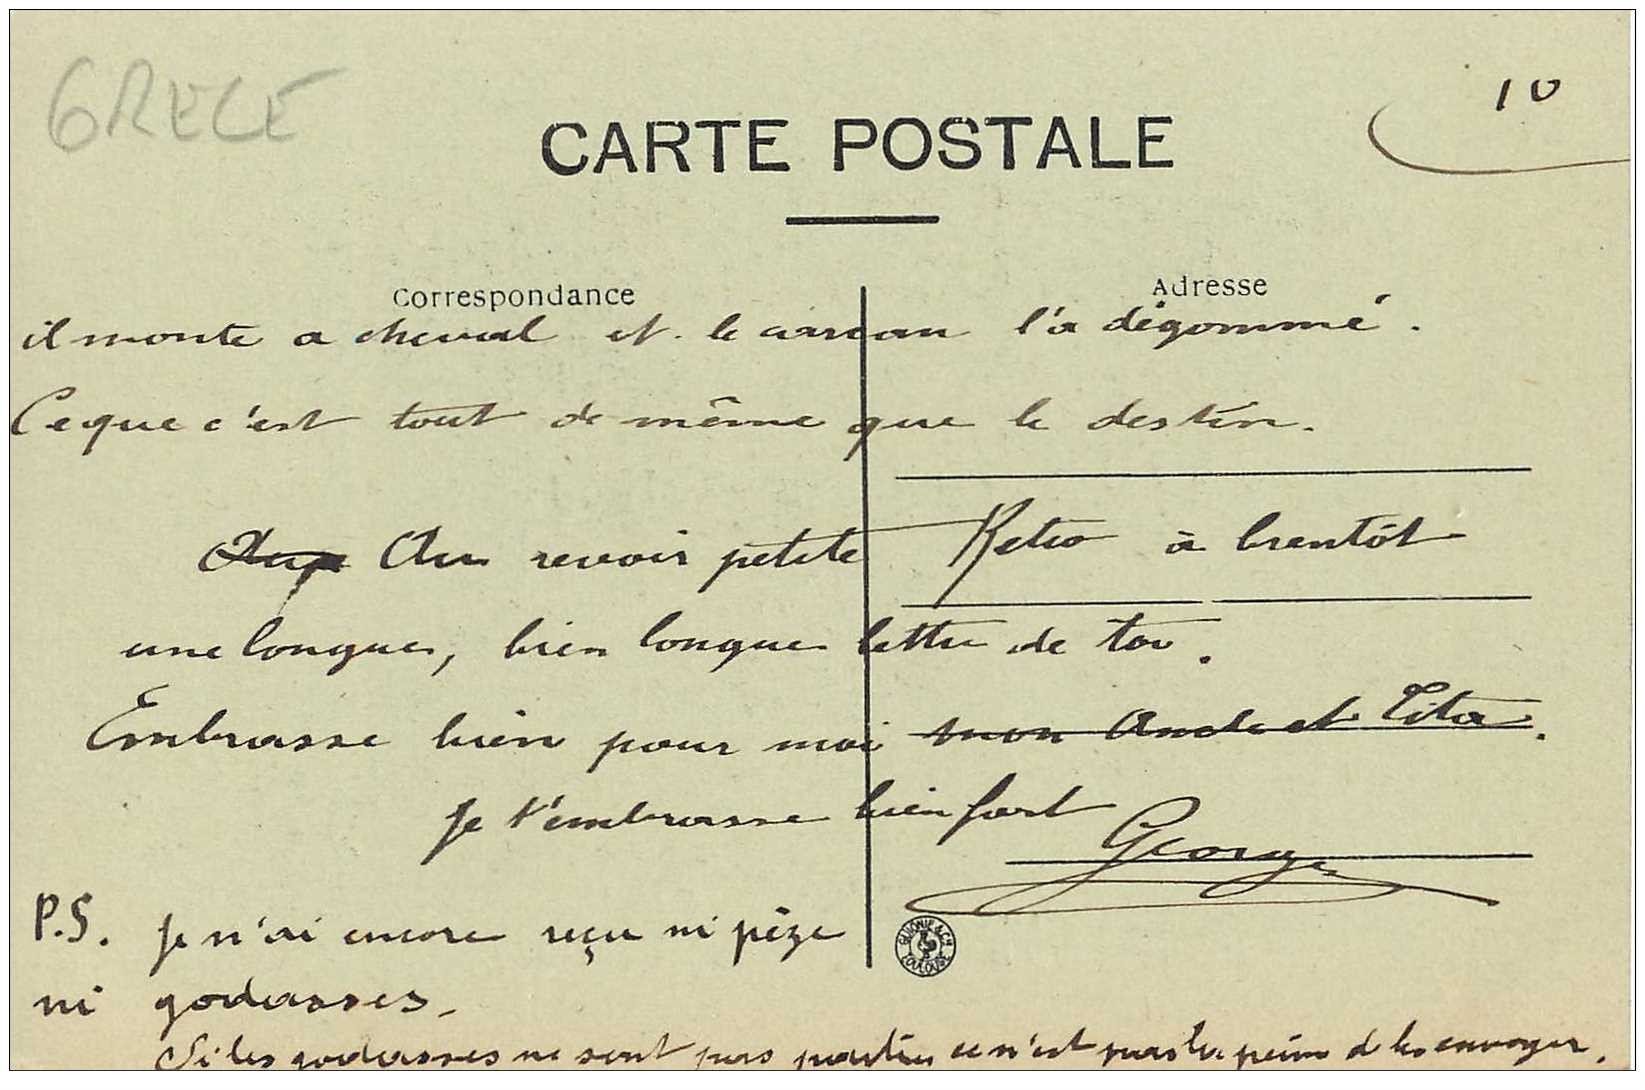 GRECE
10
CARTE POSTALE
Correspondance
Adresse
il monte a cheval et le carcan l'a dégommé.
Ce que c'est tout de même que le destin.
Au revoir petite Keko à bientôt
une longue, bien longue lettre de toi.
Embrasse bien pour moi mon Oncle et Tita.
Je t'embrasse bien fort
George
P.S. Je n'ai encore reçu ni pèze
ni godasses.
Si les godasses ne sont pas parties ce n'est pas la peine d les envoyer.